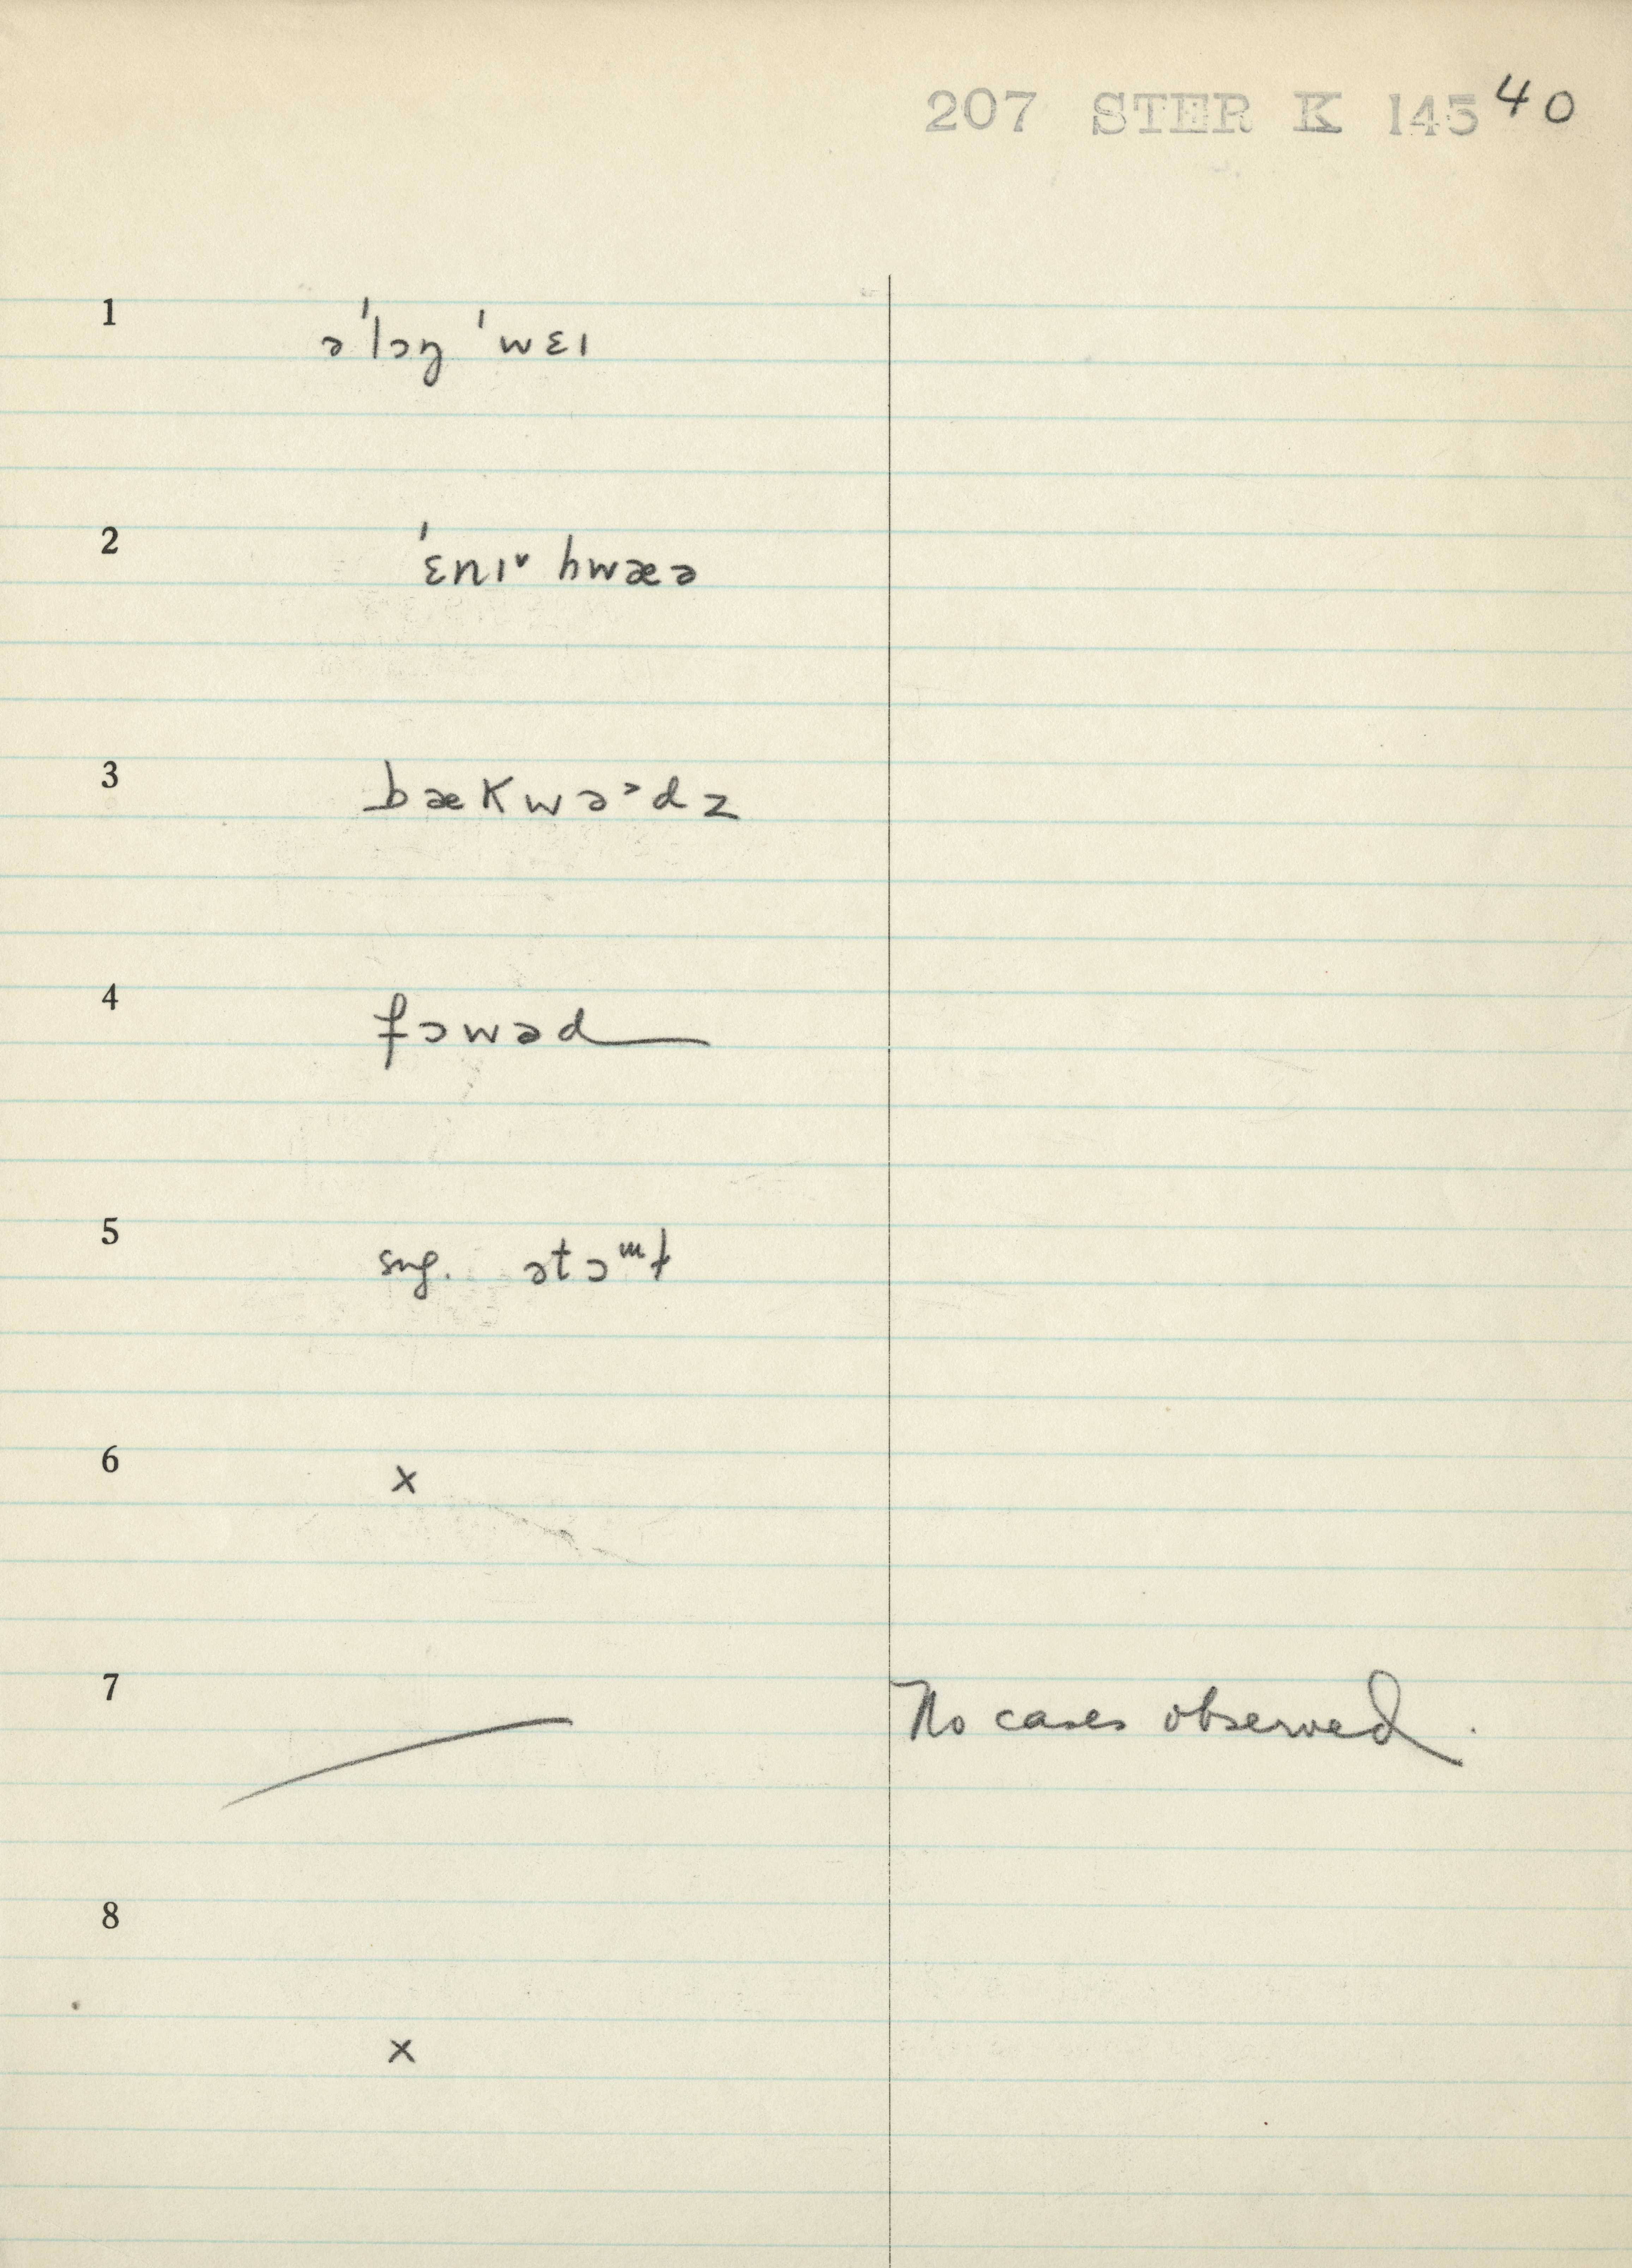 207 STER K 145 40
1 əˈlɔŋ ˈwɛɪ
2 ˈɛnɪ˅ hwæə
3 bækwəᵊdz
4 fɔwəd
5 sug. ətɔᵐt
6 x
7 No cases observed.
8
x